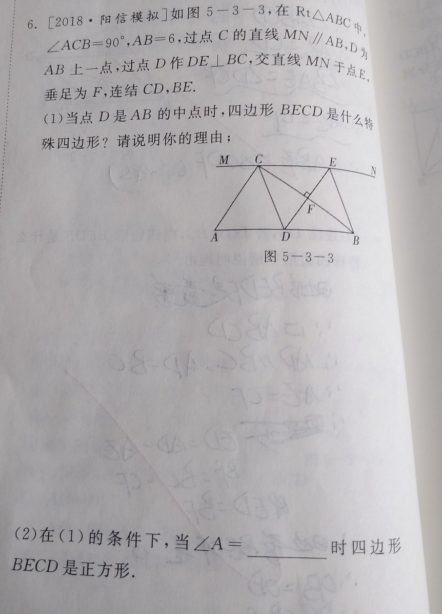 6. [2018·阳信模拟]如图 5-3-3,在 Rt△ABC 中,
∠ACB=90°,AB=6,过点 C 的直线 MN∥AB,D 为
AB 上一点,过点 D 作 DE⊥BC,交直线 MN 于点 E,
垂足为 F,连结 CD,BE.
(1)当点 D 是 AB 的中点时,四边形 BECD 是什么特
殊四边形?请说明你的理由;
M C E N
F
A D B
图 5-3-3
(2)在(1)的条件下,当∠A=________时四边形
BECD 是正方形.